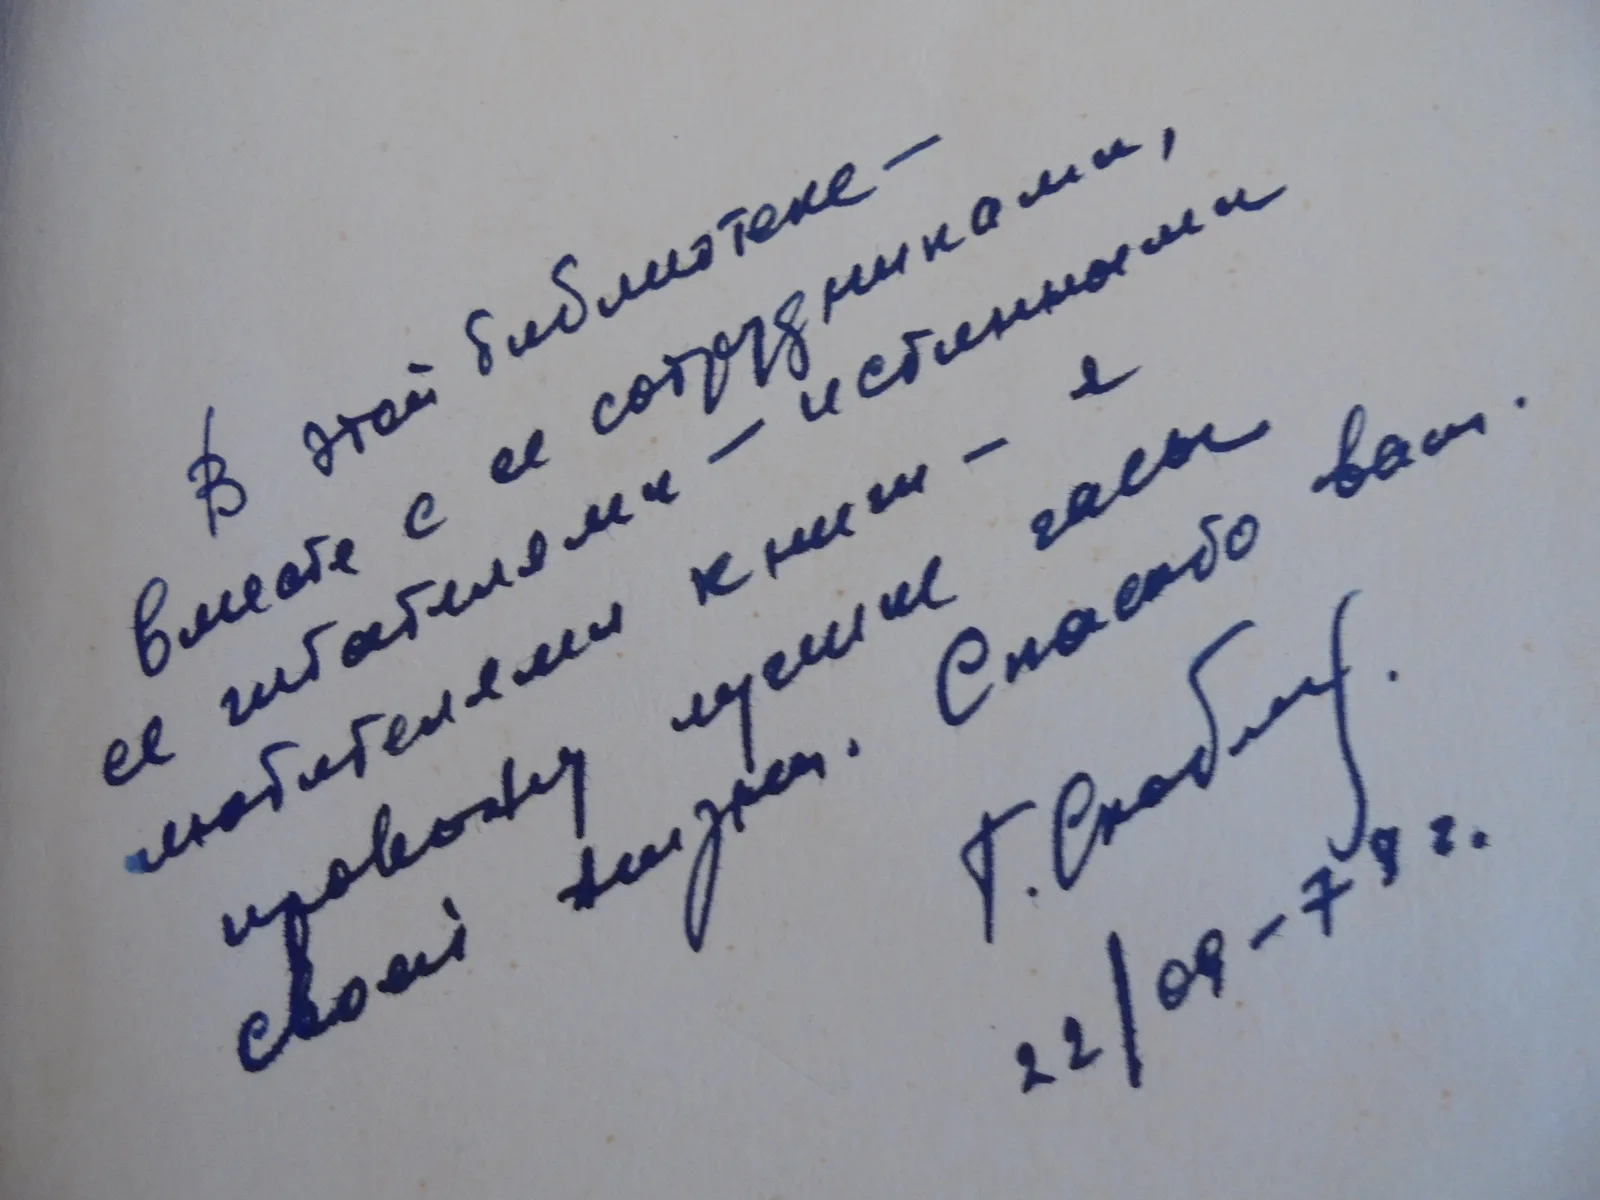 В этой библиотеке –
вместе с ее сотрудниками,
ее читателями – истинными
любителями книги – я
провожу лучшие часы
своей жизни. Спасибо вам.
Г.
22/09-79 г.